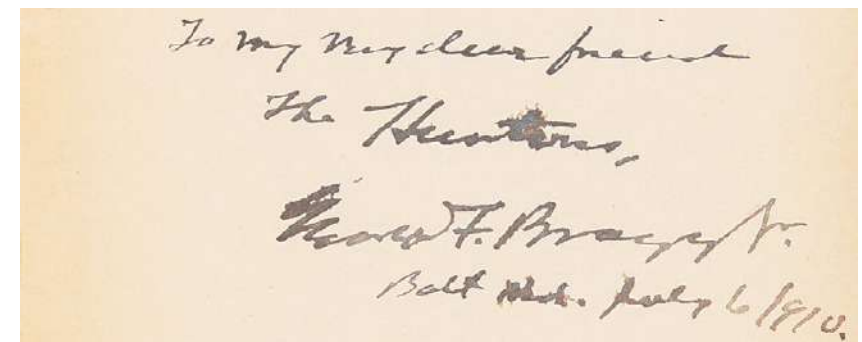 To my very dear friend
The Hunters,
George F. Bragg Jr.
Balt Md. July 6/910.